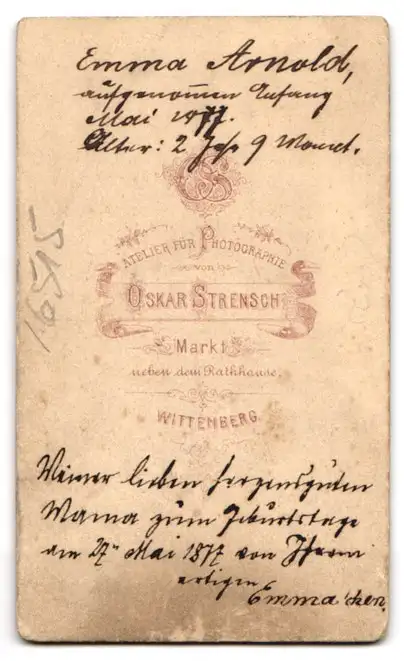 Emma Arnold,
aufgenom̅en Anfang
Mai 1877.
Alter: 2 Jahr 9 Monat.
OS
ATELIER FÜR PHOTOGRAPHIE
von
OSKAR STRENSCH
Markt
neben dem Rathhause.
WITTENBERG.
16515
Meiner lieben herzensguten
Mama zum Geburtstage
am 27ⁿ Mai 1877 von Ihrem
artigen
Emma'chen.